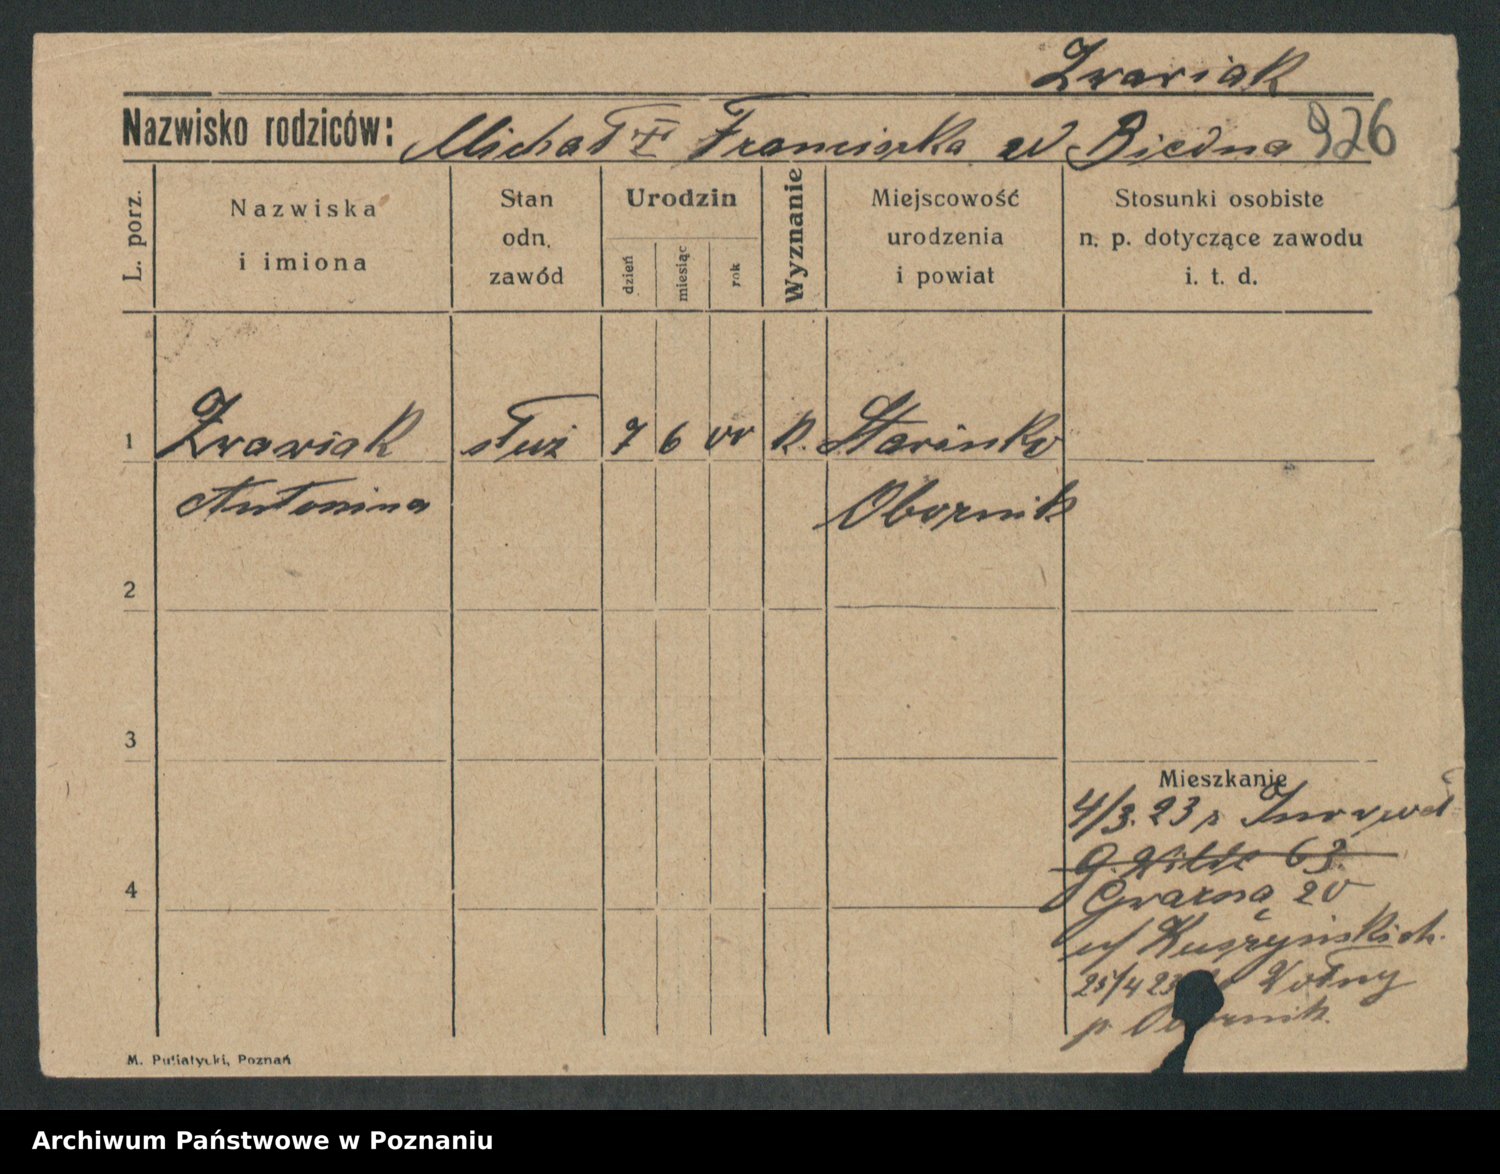 Zwawiak
Nazwisko rodziców: Michał Franciszka Biedna 926
L. porz.
Nazwiska
i imiona
Stan
odn.
zawód
Urodzin
dzień
miesiąc
rok
Wyznanie
Miejscowość
urodzenia
i powiat
Stosunki osobiste
n. p. dotyczące zawodu
i. t. d.
1 Zwawiak służ 7 6 00 k.
Antonina Obornik
2
3
Mieszkanie
4/3. 23
63
4
20
25/4 23
p. Obornik
M. Putiatycki, Poznań
Archiwum Państwowe w Poznaniu